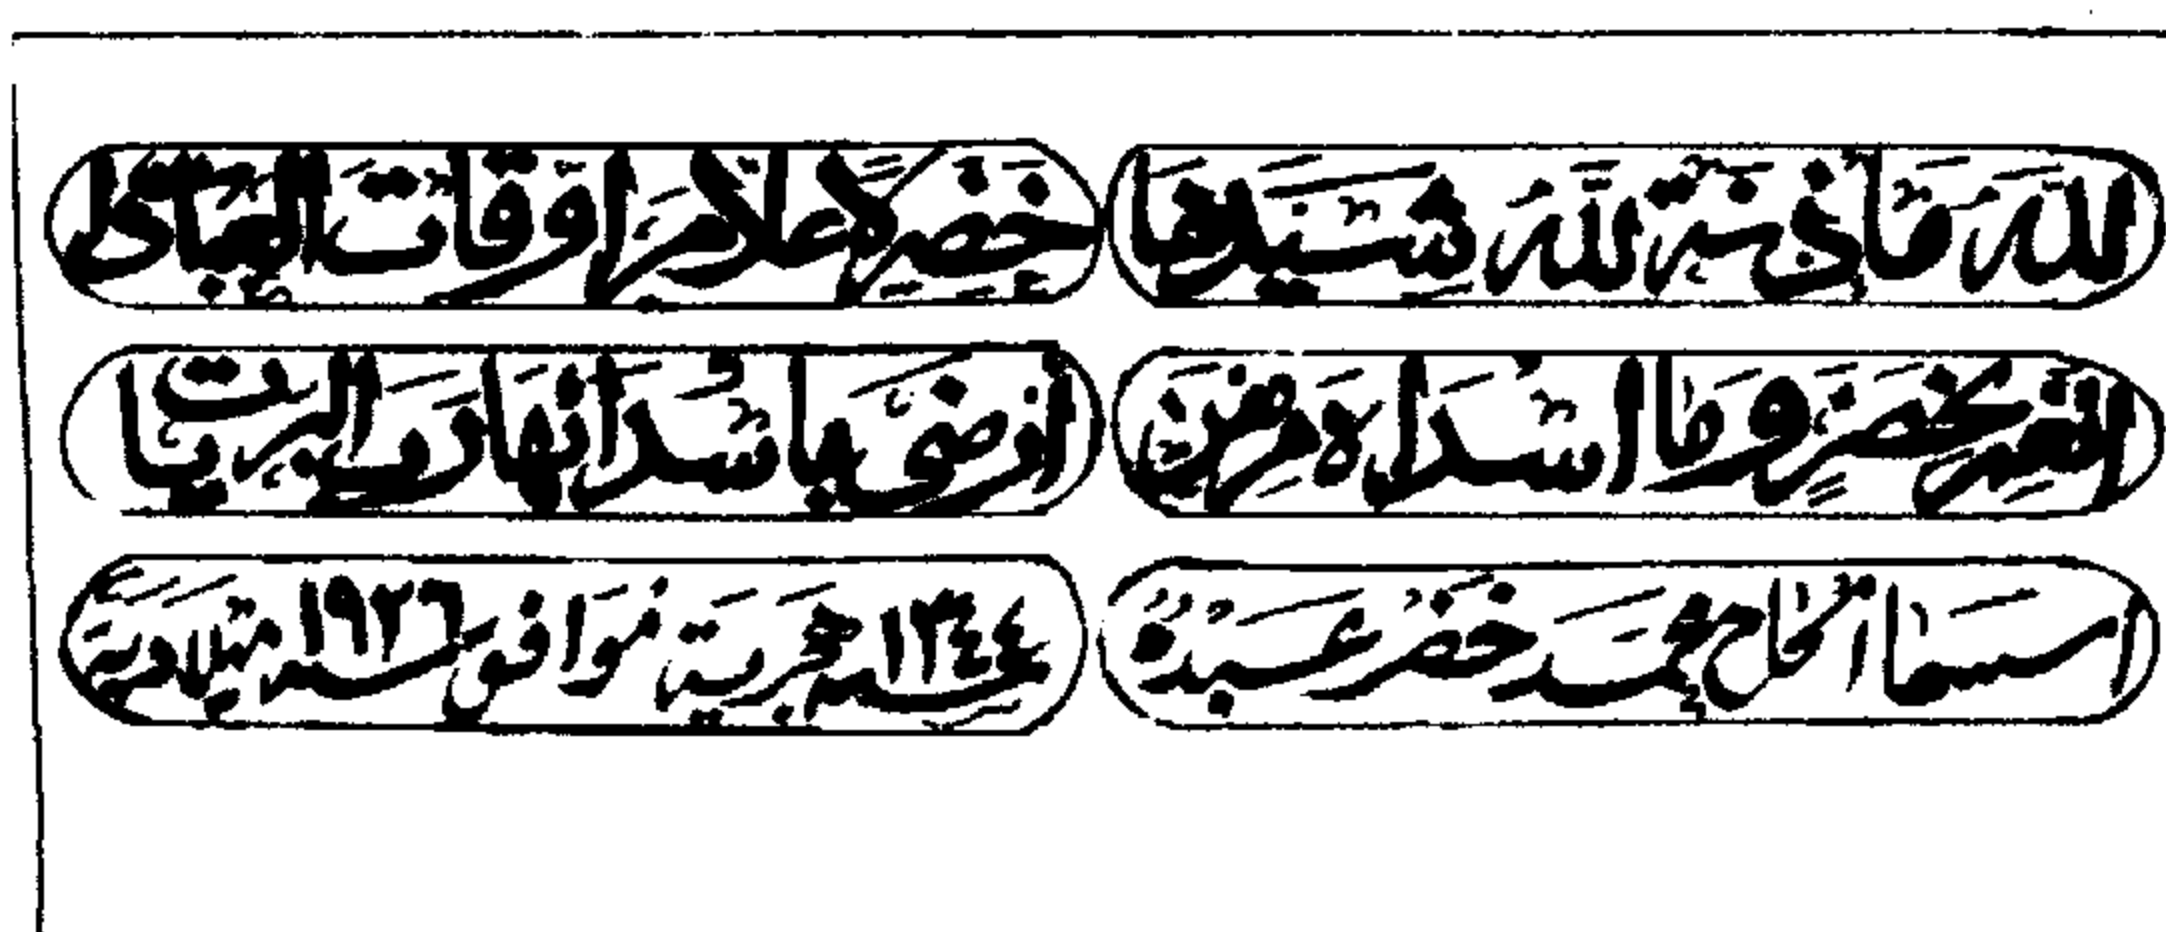 لله مأذنة لله شيدها خضر لاعلام اوقات العبادات
انعم بخضر وما اسداه من أرضى بها
اسسها الحاج محمد خضر عبده سنة ١٣٤٤ هجرية موافق سنة ١٩٢٦ ميلادية